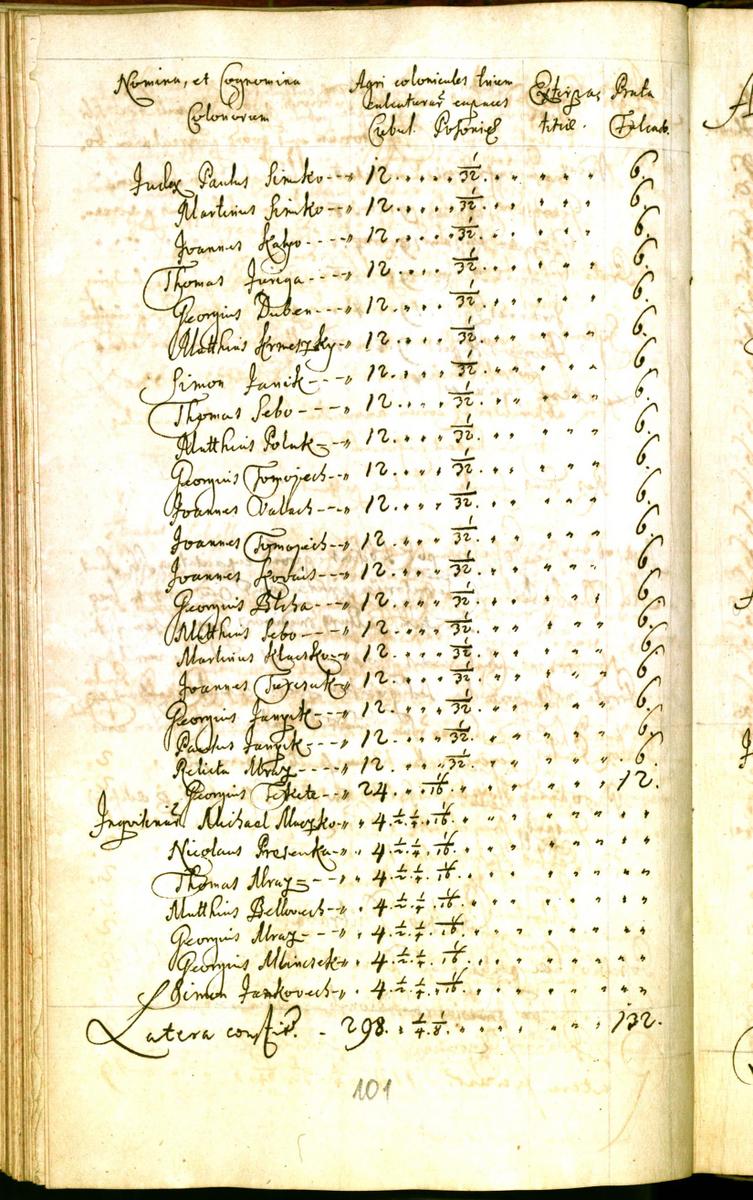 Nomina, et Cognomina
Colonorum
Agri colonicales
Cubul. Posonien
Extirpa
titiæ.
Prata
Falcab.
Judex Paulus Simko --- 12. 1/32 6.
Martinus Simko --- 12. 1/32 6.
Joannes 12. 1/32 6.
Thomas Juriga --- 12. 1/32 6.
Georgius Duben --- 12. 1/32 6.
Matthius 12. 1/32 6.
Simon Janik --- 12. 1/32 6.
Thomas Sebo --- 12. 1/32 6.
Matthius Polak 12. 1/32 6.
Georgius Tomojech --- 12. 1/32 6.
Joannes Valach --- 12. 1/32 6.
Joannes Tomojech --- 12. 1/32 6.
Joannes Kovats --- 12. 1/32 6.
Georgius Blcha --- 12. 1/32 6.
Matthius Sebo --- 12. 1/32 6.
Martinus 12. 1/32 6.
Joannes 12. 1/32 6.
Georgius Janyik --- 12. 1/32 6.
Paulus Janyik --- 12. 1/32 6.
Relicta Mraz --- 12. 1/32 6.
Georgius Fekete --- 24. 1/16 12.
Michael 4. 1/2. 1/4. 1/16.
Nicolaus 4. 1/2. 1/4. 1/16.
Thomas Mraz 4. 1/2. 1/4. 1/16.
Matthius Bellovech 4. 1/2. 1/4. 1/16.
Georgius Mraz 4. 1/2. 1/4. 1/16.
Georgius Mlincsek 4. 1/2. 1/4. 1/16.
Simon Jankovech 4. 1/2. 1/4. 1/16.
Latera 298. 1/4. 1/8. 132.
101